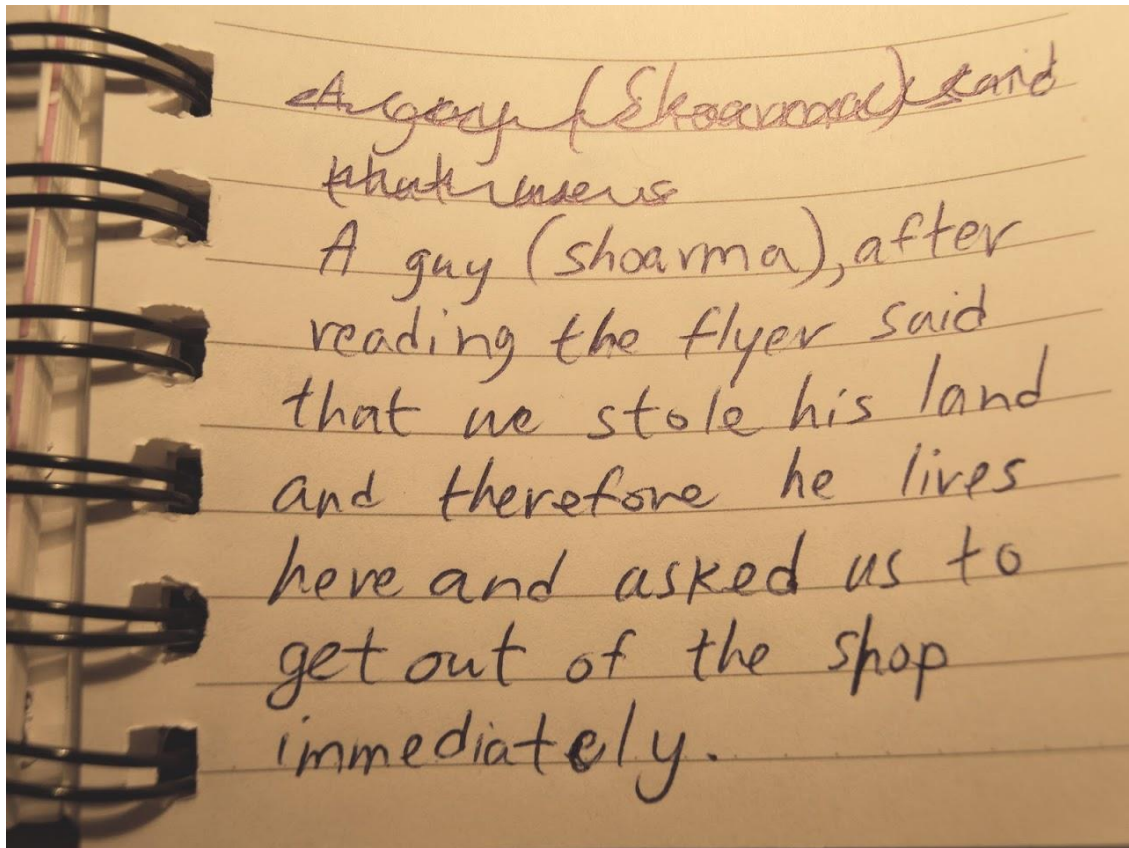 A guy (Shoarma) said
that we
A guy (shoarma), after
reading the flyer said
that we stole his land
and therefore he lives
here and asked us to
get out of the shop
immediately.